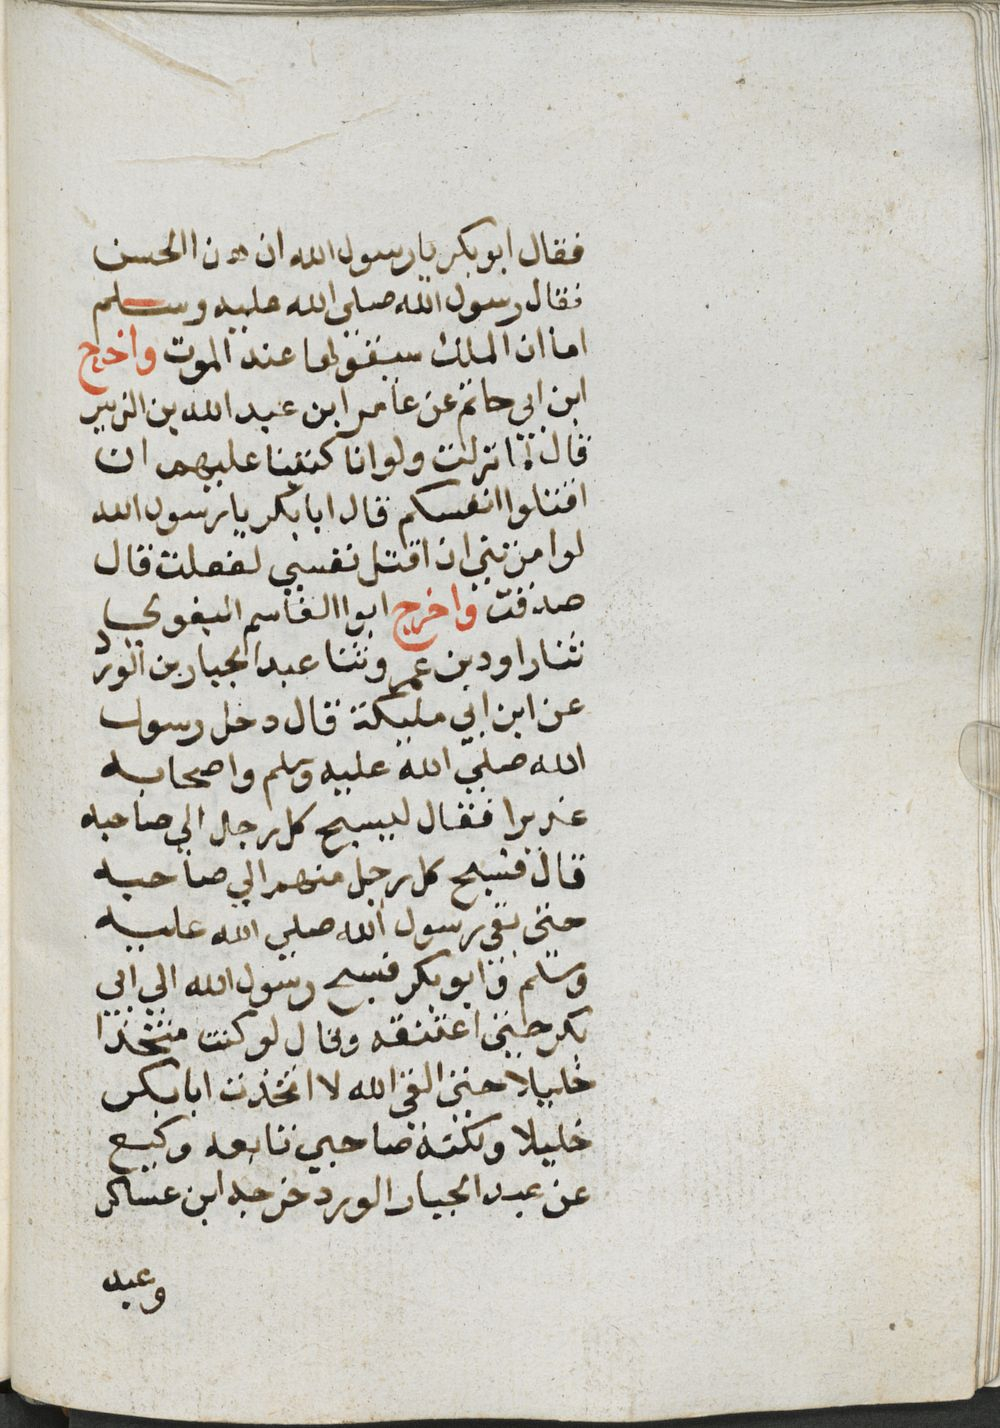 فقال ابوبكر يا رسول الله ان هذا الحسن
فقال رسول الله صلى الله عليه وسلم
اما ان الملك سيقولها عند الموت واخرج
ابن ابي حاتم عن عامر ابن عبد الله بن الزبير
قال لما نزلت ولو انا كتبنا عليهم ان
اقتلوا انفسكم قال ابا بكر يا رسول الله
لو امرتني ان اقتل نفسي لفعلت قال
صدقت واخرج ابوا القاسم البغوي
ثنا داود بن عمر وثنا عبد الجبار بن الورد
عن ابن ابي مليكة قال دخل رسول
الله صلي الله عليه وسلم واصحابه
غديرا فقال ليسبح كل رجل الي صاحبه
قال فسبح كل رجل منهم الي صاحبه
حتى بقي رسول الله صلي الله عليه
وسلم وابو بكر فسبح رسول الله الي ابي
بكر حتى اعتنقه وقال لو كنت متخذا
خليلا حتى القى الله لا اتخذت ابا بكر
خليلا ولكنه صاحبي تابعه وكيع
عن عبد الجبار الورد خرجه ابن عساكر
وعبد